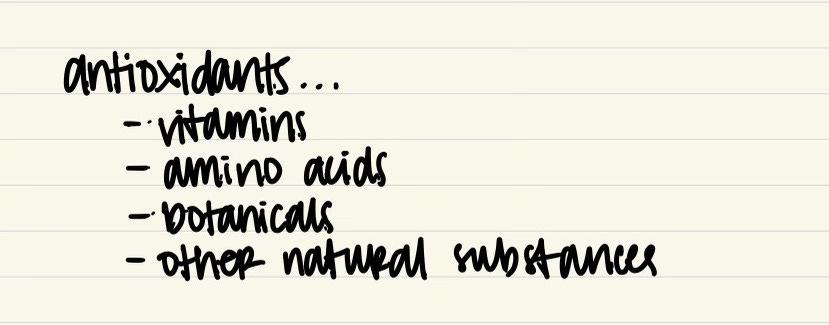 antioxidants...
- vitamins
- amino acids
- botanicals
- other natural substances